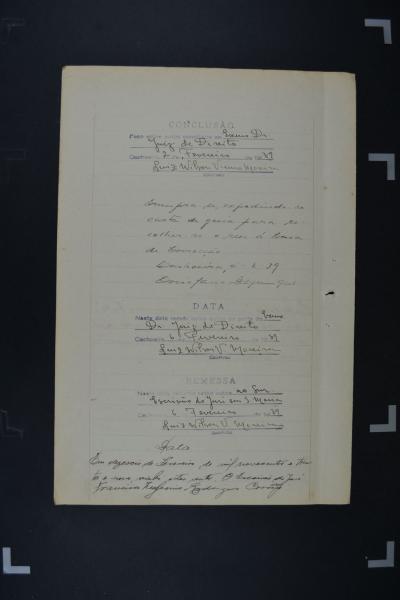 CONCLUSÃO
Faço estes autos conclusos ao Exmo Dr.
Juiz de Direito
Cachoeira 2 de Fevereiro de 1939
Luiz Wilson Vianna Moreira
Escrivão
Cumpra-se, expedindo-se
carta de guia para re-
colher-se o reo á Casa
de Correcção
Cachoeira, 6-2-39
DATA
Nesta data recebi estes autos da parte do Exmo
Dr. Juiz de Direito
Cachoeira 6 Fevereiro de 1939
Luiz Wilson V. Moreira
Escrivão
REMESSA
Nesta data estes autos ao Snr.
Escrivão do Juri
6 Fevereiro de 1939
Luiz Wilson V. Moreira
Escrivão
Data
Em de Fevereiro de mil novecentos e trin-
ta e nove, recebi estes autos. O Escrivão do Juri
Francisco Rodrigues